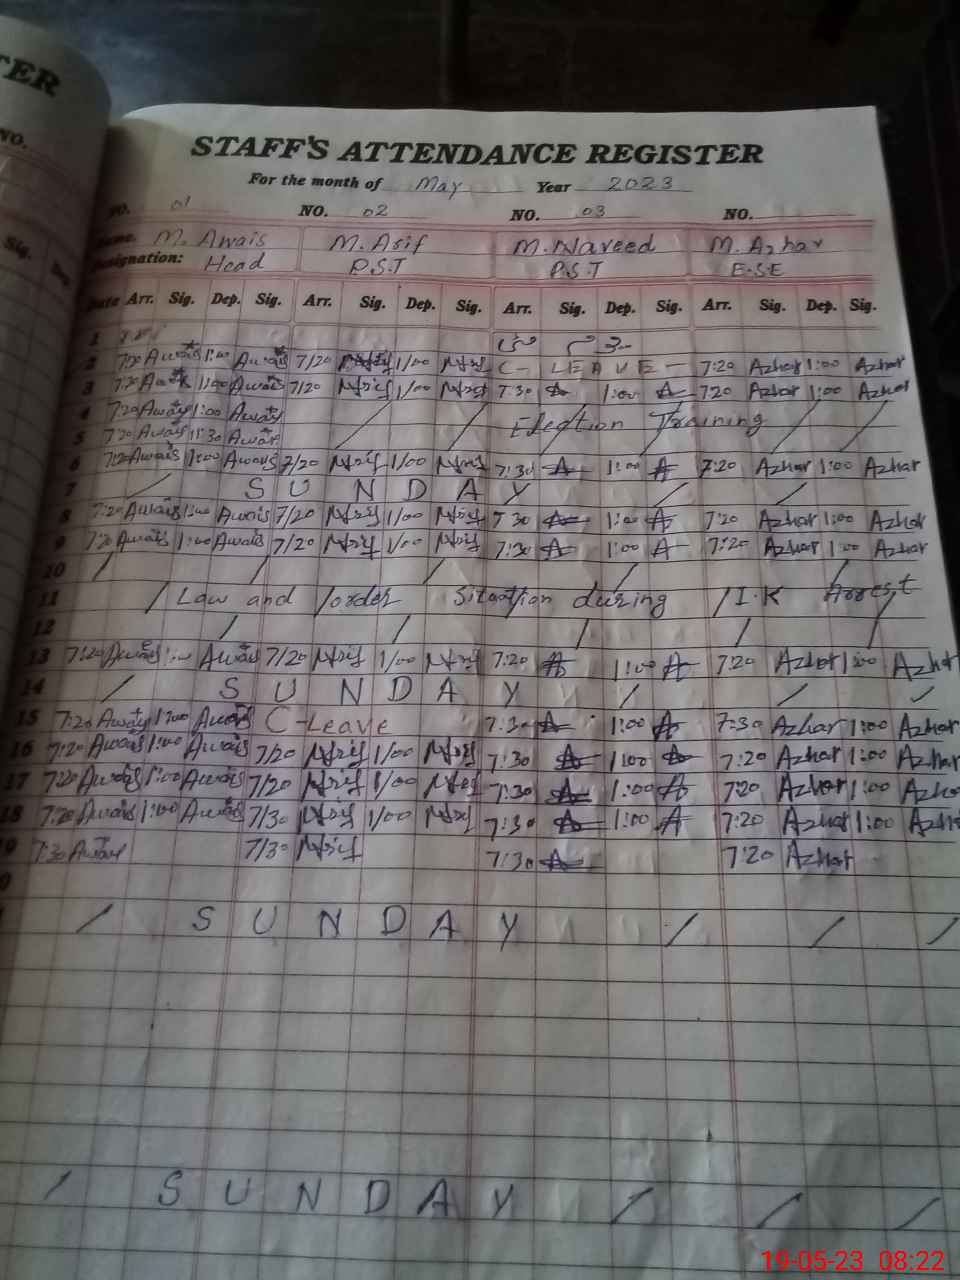 TER
NO.
Sig.
STAFF'S ATTENDANCE REGISTER
For the month of May Year 2023
NO. 01 NO. 02 NO. 03 NO.
Name. M. Awais M. Asif M. Naveed M. Azhar
Designation: Head P.S.T P.S.T E.S.E
Date Arr. Sig. Dep. Sig. Arr. Sig. Dep. Sig. Arr. Sig. Dep. Sig. Arr. Sig. Dep. Sig.
1
2 7:20 Awais 1:00 Awais 7/20 1/00 C- LEAVE - 7:20 Azhar 1:00 Azhar
3 7:20 1:00 Awais 7/20 1/00 7:30 A 1:00 A 7:20 Azhar 1:00 Azhar
4 7:20 Awais 1:00 Awais Election Training
5 7:20 Awais 1:30 Awais
6 7:20 Awais 1:00 Awais 7/20 1/00 7:30 A 1:00 A 7:20 Azhar 1:00 Azhar
7 SUNDAY
8 7:20 Awais 1:00 Awais 7/20 1/00 7:30 A 1:00 A 7:20 Azhar 1:00 Azhar
9 7:20 Awais 1:00 Awais 7/20 1/00 7:30 A 1:00 A 7:20 Azhar 1:00 Azhar
10
11 Law and order Situation during I.K Arrest
12
13 7:20 Awais 1:00 Awais 7/20 1/00 7:20 A 1:00 A 7:20 Azhar 1:00 Azhar
14 SUNDAY
15 7:20 Awais 1:00 Awais C-Leave 7:30 A 1:00 A 7:30 Azhar 1:00 Azhar
16 7:20 Awais 1:00 Awais 7/20 1/00 7:30 A 1:00 A 7:20 Azhar 1:00 Azhar
17 7:20 Awais 1:00 Awais 7/20 1/00 7:30 A 1:00 A 7:20 Azhar 1:00 Azhar
18 7:20 Awais 1:00 Awais 7/30 1/00 7:30 A 1:00 A 7:20 Azhar 1:00 Azhar
19 7:30 Awais 7/30 7:30 A 7:20 Azhar
SUNDAY
SUNDAY
19-05-23 08:22